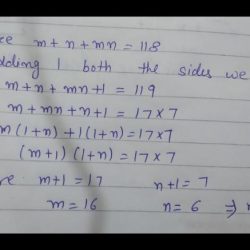 m + n + mn = 118
dding 1 both the sides we
m + n + mn + 1 = 119
m + mn + n + 1 = 17 × 7
m(1+n) + 1(1+n) = 17 × 7
(m+1) (1+n) = 17 × 7
m+1 = 17 n+1 = 7
m = 16 n = 6 ⇒